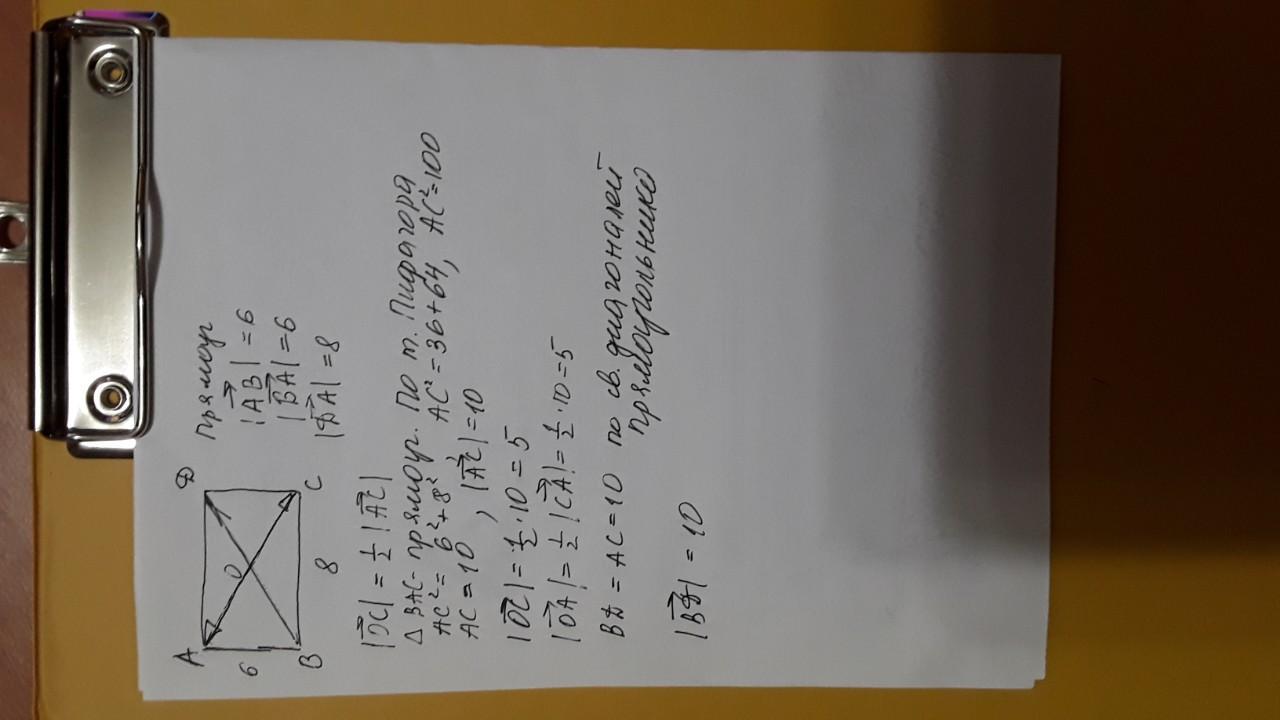 A
D
O
6
B
8
C
прямоуг
|AB| = 6
|BA| = 6
|DA| = 8
|OC| = 1/2 |AC|
△ BAC - прямоуг. По т. Пифагора
AC² = 6² + 8² AC² = 36 + 64, AC² = 100
AC = 10 , |AC| = 10
|OC| = 1/2 · 10 = 5
|OA| = 1/2 |CA| = 1/2 · 10 = 5
BD = AC = 10 по св. диагоналей
прямоугольника
|BD| = 10